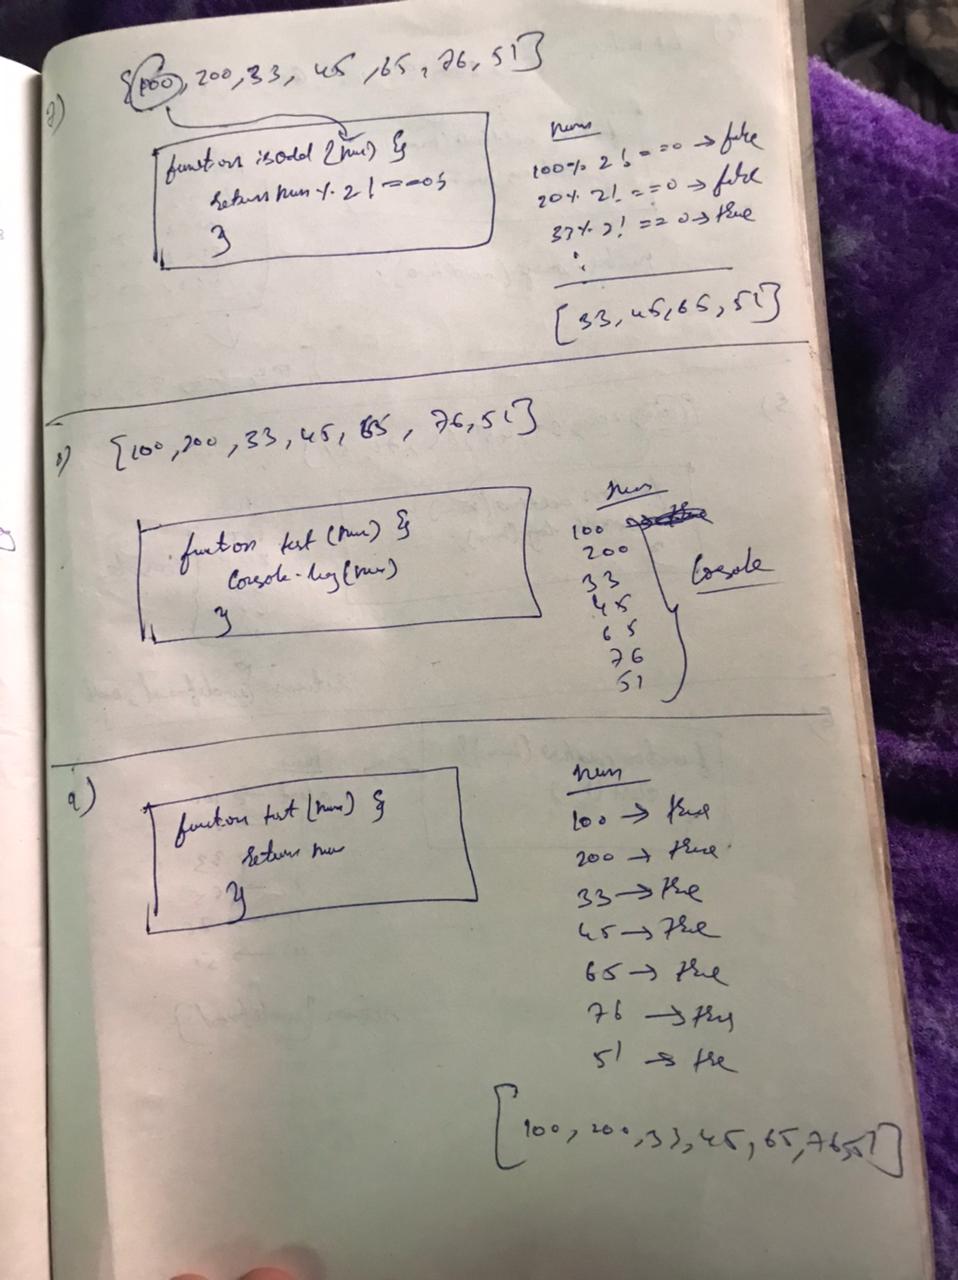 7)
[100, 200, 33, 45, 65, 76, 51]
function isodd (num) {
return num % 2 !== 0;
}
nums
100 % 2 ! == 0 → false
20 % 2! == 0 → false
33 % 2! == 0 → true
[33, 45, 65, 51]
8)
[100, 200, 33, 45, 65, 76, 51]
function test (num) {
Console.log(num)
}
num
100
200
33
45
65
76
51
Console
9)
function test (num) {
return num
}
num
100 → true
200 → true
33 → true
45 → true
65 → true
76 → true
51 → true
[100, 200, 33, 45, 65, 76, 51]